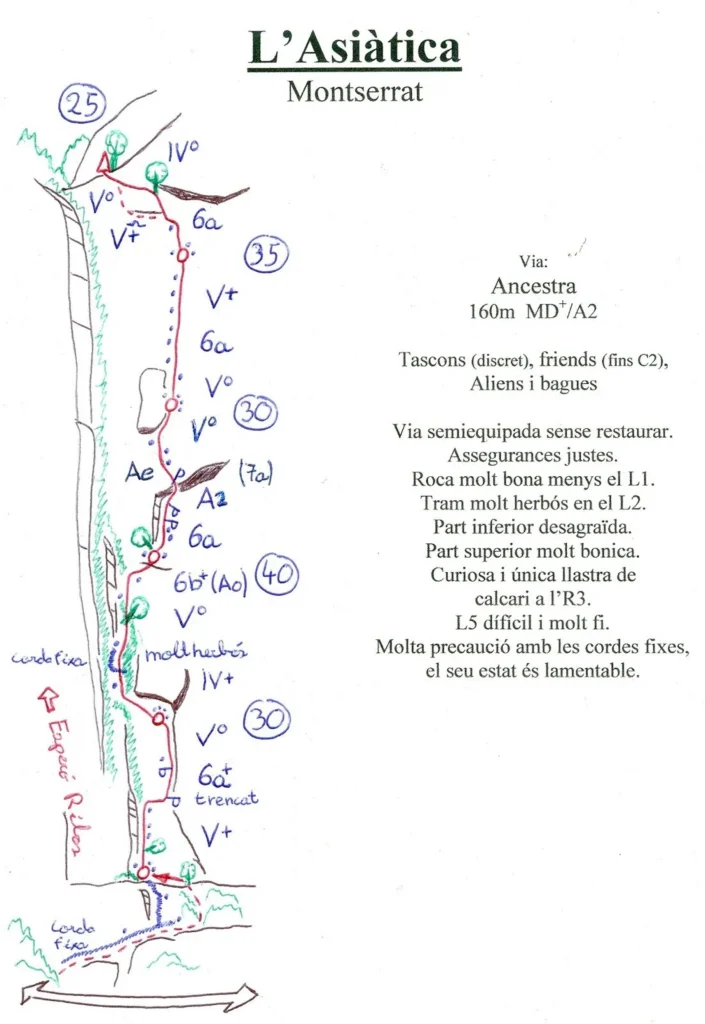 L'Asiàtica
Montserrat
25
IV°
V°
V+
6a
35
V+
6a
V°
30
V°
Ae
(7a)
A2
6a
40
6b+(Ao)
V°
corda fixa
molt herbós
IV+
30
V°
6a+
trencat
V+
Esperó Ribes
corda
fixa
Via:
Ancestra
160m MD+/A2
Tascons (discret), friends (fins C2),
Aliens i bagues
Via semiequipada sense restaurar.
Assegurances justes.
Roca molt bona menys el L1.
Tram molt herbós en el L2.
Part inferior desagraïda.
Part superior molt bonica.
Curiosa i única llastra de
calcari a l'R3.
L5 díficil i molt fi.
Molta precaució amb les cordes fixes,
el seu estat és lamentable.